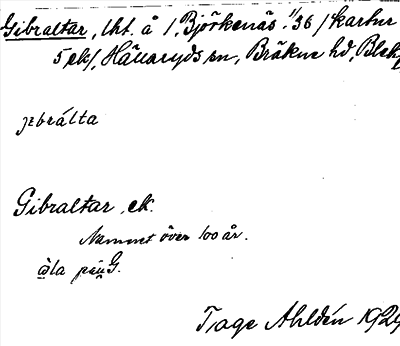 Gibraltar, lht. å 1/, Björkenäs 1/36 /kartnr
5 ek/, Hällaryds sn, Bräkne hd, Blek
jɪbrálta
Gibraltar, ek.
Namnet över 100 år.
G.
Tage Ahldén 1929